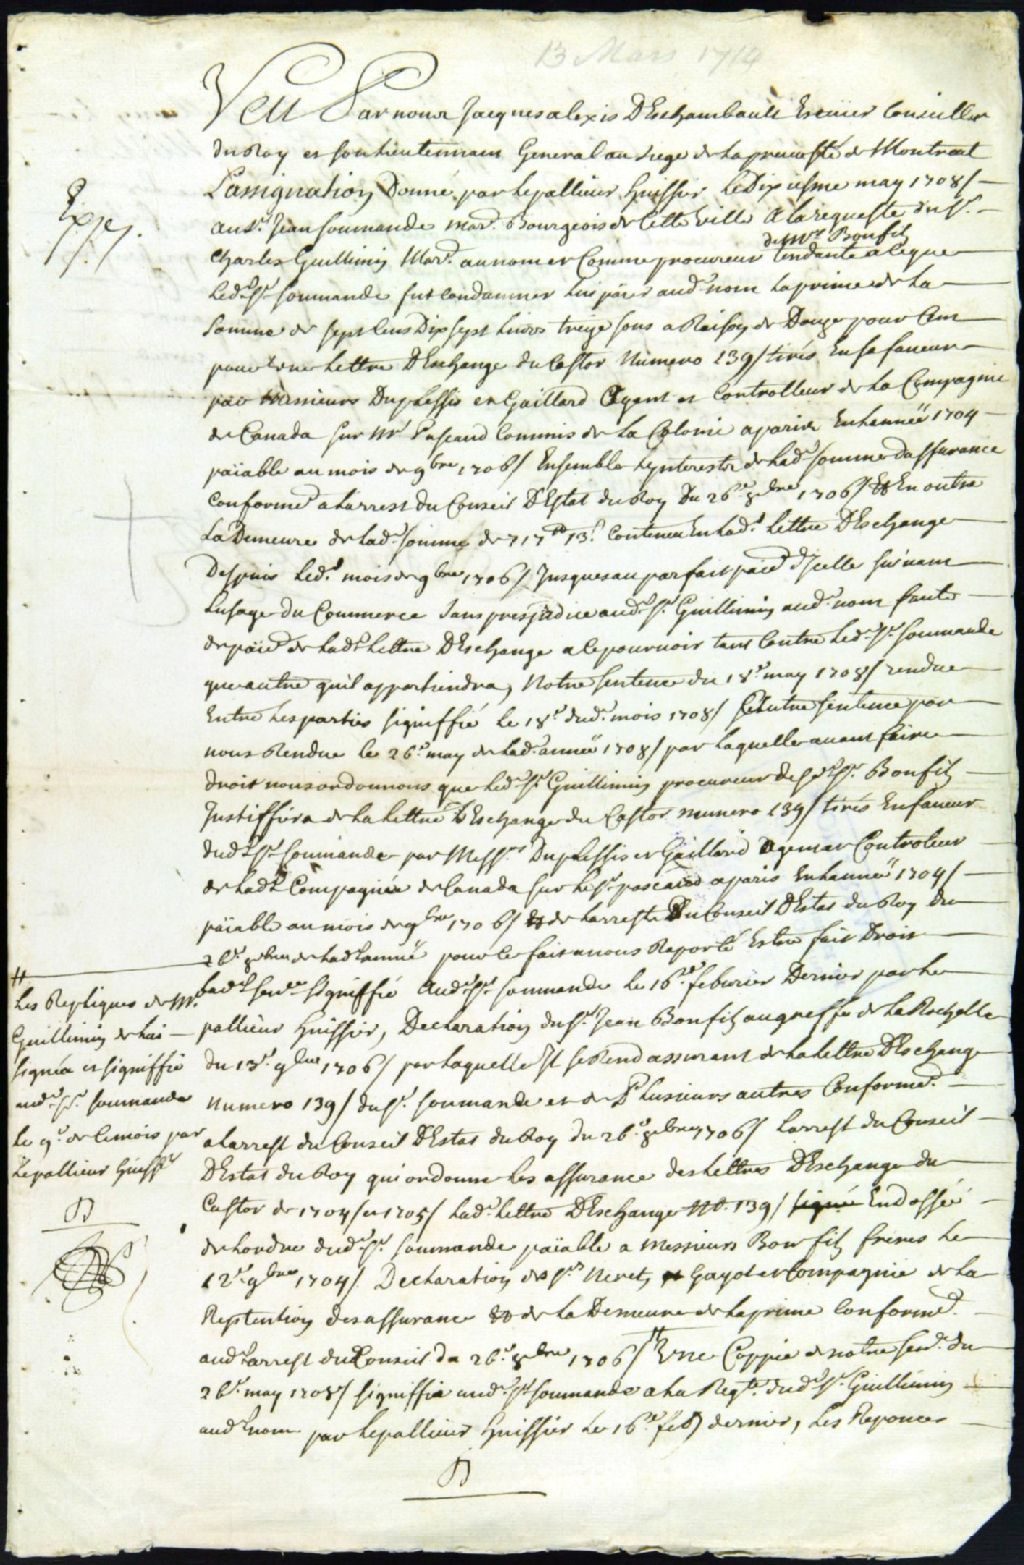 13 Mars 1714
Veu Par nous Jacques alexis DEschambault Escuier Conseiller
du Roy et son lieutennant General au siege de la prevosté de Montreal
L'assignation Donné par Lepallieur Huissier le Dix iesme may 1708/
Exp.
au Sr. Jean Soumande Mard. Bourgeois de Cette ville a la requeste du Sr.
Charles Guillimin Mard. au nom et Comme procureur de Mrs Bonfils tendante a Ce que
Led. Sr. Soumande fut condamner luy païer aud. nom la prime de la
Somme de sept Cens Dix sept livres treze sous a Raison de Douze pour Cent
pour une Lettre DEschange du Castor Numero 139/ tirés En sa faveur
par Messieurs Duplessis et Gaillard Agent et Controlleur de la Compagnie
de Canada sur Mr. Pascaud Commis de la Colonie a paris En lannéë 1704
païable au mois de 9bre 1706/ Ensemble les Interests de lad. somme dassurance
Conformemt. a larrest du Conseil DEstat du Roy du 26e. 8bre 1706/ Et En outre
La Demeure de lad. somme de 717tt 13s. Contenue En lad. lettre DEschange
Depuis led. mois de 9bre 1706/ Jusques au parfait païemt. dIcelle suivant
Lusage du Commerce sans prejudice aud. Sr. Guillimin aud. nom faute
de païemt. de lad. Lettre DEschange a se pourvoir tant Contre led. Sr. Soumande
que autre quil appartiendra, Notre sentence du 18e. may 1708/ rendue
Entre les parties signiffié le 18e. dud. mois 1708/ Autre sentence par
nous Rendue le 26e. may de lad. annéë 1708/ par laquelle avant faire
droit nous ordonnons que led. Sr. Guillimin procureur desd. Srs. Bonfils
Justiffira de la Lettre DEschange du Castor numero 139/ tirés En faveur
dud. Sr. Soumande par Messrs. Duplessis et Gaillard Agent et Controleur
de lad. Compagnie de Canada sur le Sr. pascaud a paris En lannéë 1704/
païable au mois de 9bre 1706/ & de larreste du Conseil DEstat du Roy du
26e. 8bre de lad. annéë pour ce fait a nous Raporté Estre fait Droit
lad. Sence signiffié aud. Sr. Soumande le 16e. feburier Dernier par Le
pallieur Huissier, Declaration du Sr. Jean Bonfils au greffe de la Rochelle
du 13e. 9bre 1706/ par laquelle Il se Rend assurant de la lettre DEschange
Numero 139/ du Sr. Soumande et de Plusieurs autres Conformemt.
a larrest du Conseil DEstat du Roy du 26e. 8bre 1706/ Larrest du Conseil
DEstat du Roy qui ordonne les assurance des lettres DEschange du
Castor de 1704/ et 1705/ lad. Lettre DEschange No. 139/ signée Endossée
de Lordre dud. Sr. Soumande païable a Messieurs Bonfils freres le
12e. 9bre 1704/ Declaration des Srs. Neret & Gayot et Compagnie de la
Reptention des assurance & de la Demeure de la prime Conformemt.
aud. arrest du Conseil du 26e. 8bre 1706/ # Une Coppie de notre sence. du
26e. may 1708/ signiffié aud. Sr. Soumande a la Reqte. dud. Sr. Guillimin
aud. nom par Lepallieur Huissier le 16e. feb. dernier, les Reponces
B
#
Les Repliques de Mr.
Guillimin de lui
signéa et signiffié
aud. Sr. Soumande
le 9e. de Ce mois par
Lepallieur Huissr.
B